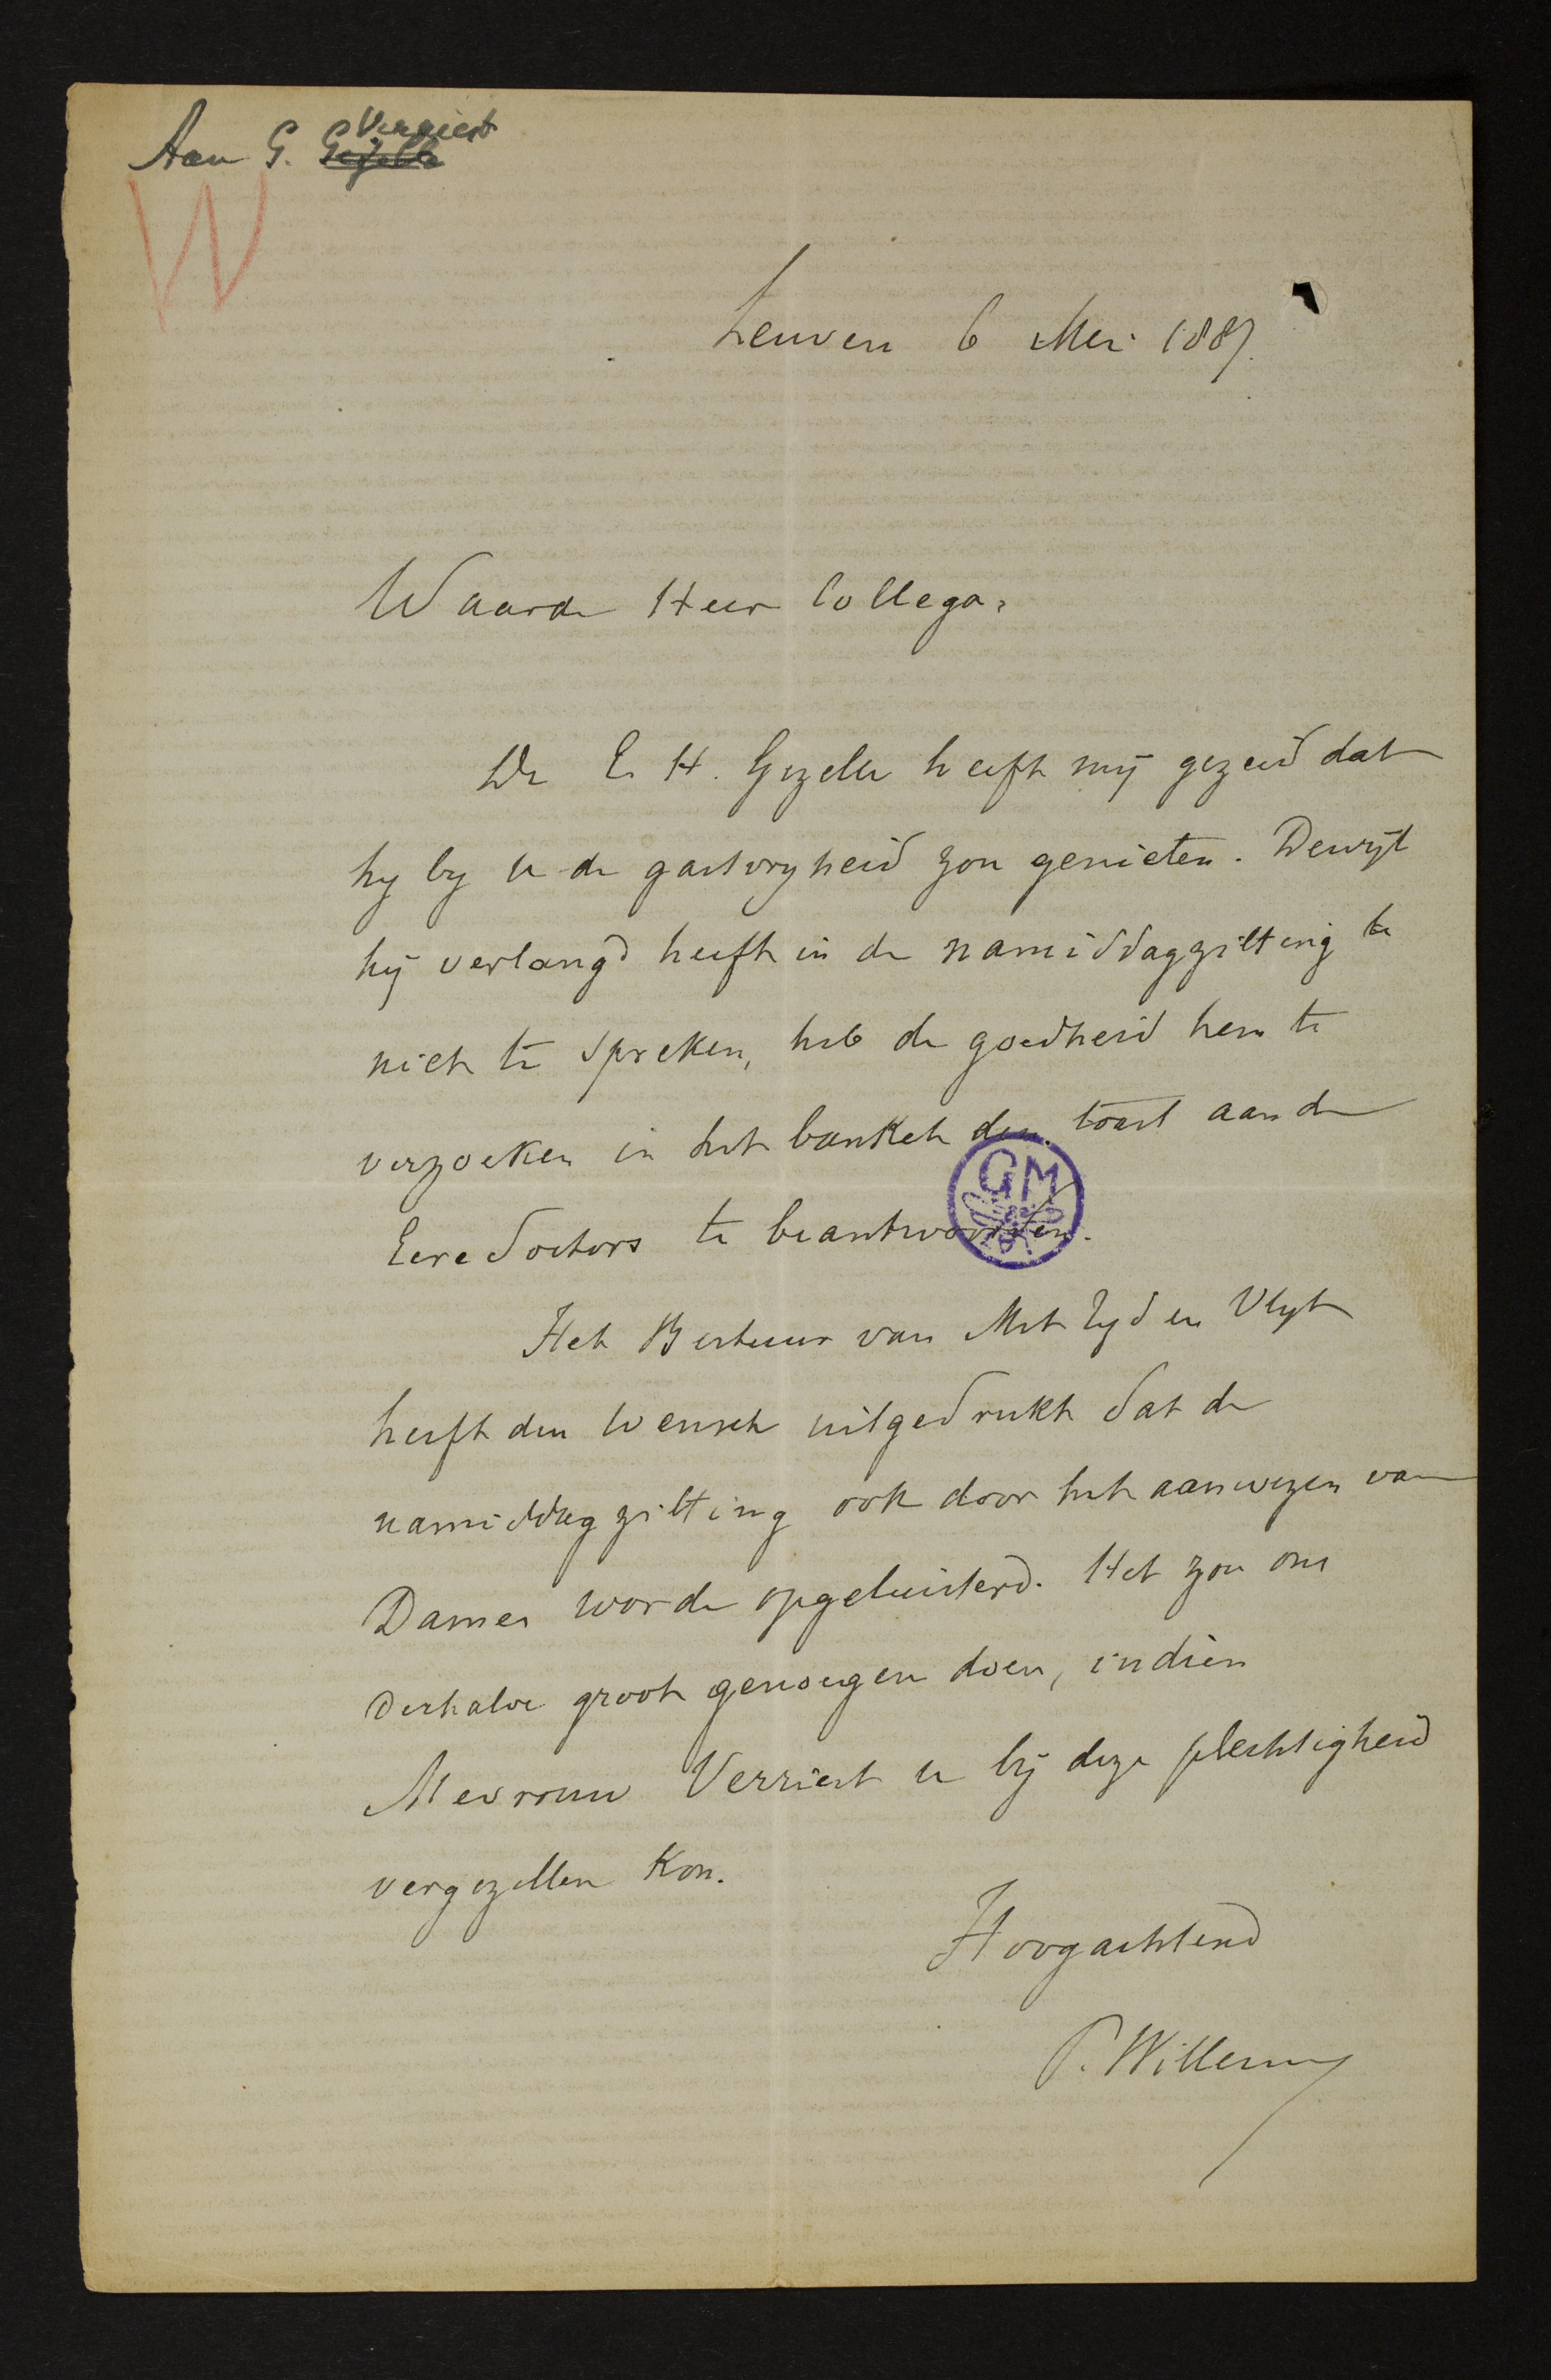 Verriest
Aan G. Gezelle
W
Leuven 6 Mei 1887.
Waarde Heer Collega,
De E. H. Gezelle heeft mij gezeid dat
hy by u de gastvryheid zou genieten. Dewijl
hij verlangd heeft in de namiddagzitting te
niet te spreken, heb de goedheid hem te
verzoeken in het banket den toast aan de
Eeredoctors te beantwoorden.
GM
Het Bestuur van Met Tyd en Vlyt
heeft den wensch uitgedrukt dat de
namiddagzitting ook door het aanwezen van
Dames worde opgeluisterd. Het zou ons
derhalve groot genoegen doen, indien
Mevrouw Verriest u bij deze plechtigheid
vergezellen kon.
Hoogachtend
P. Willems